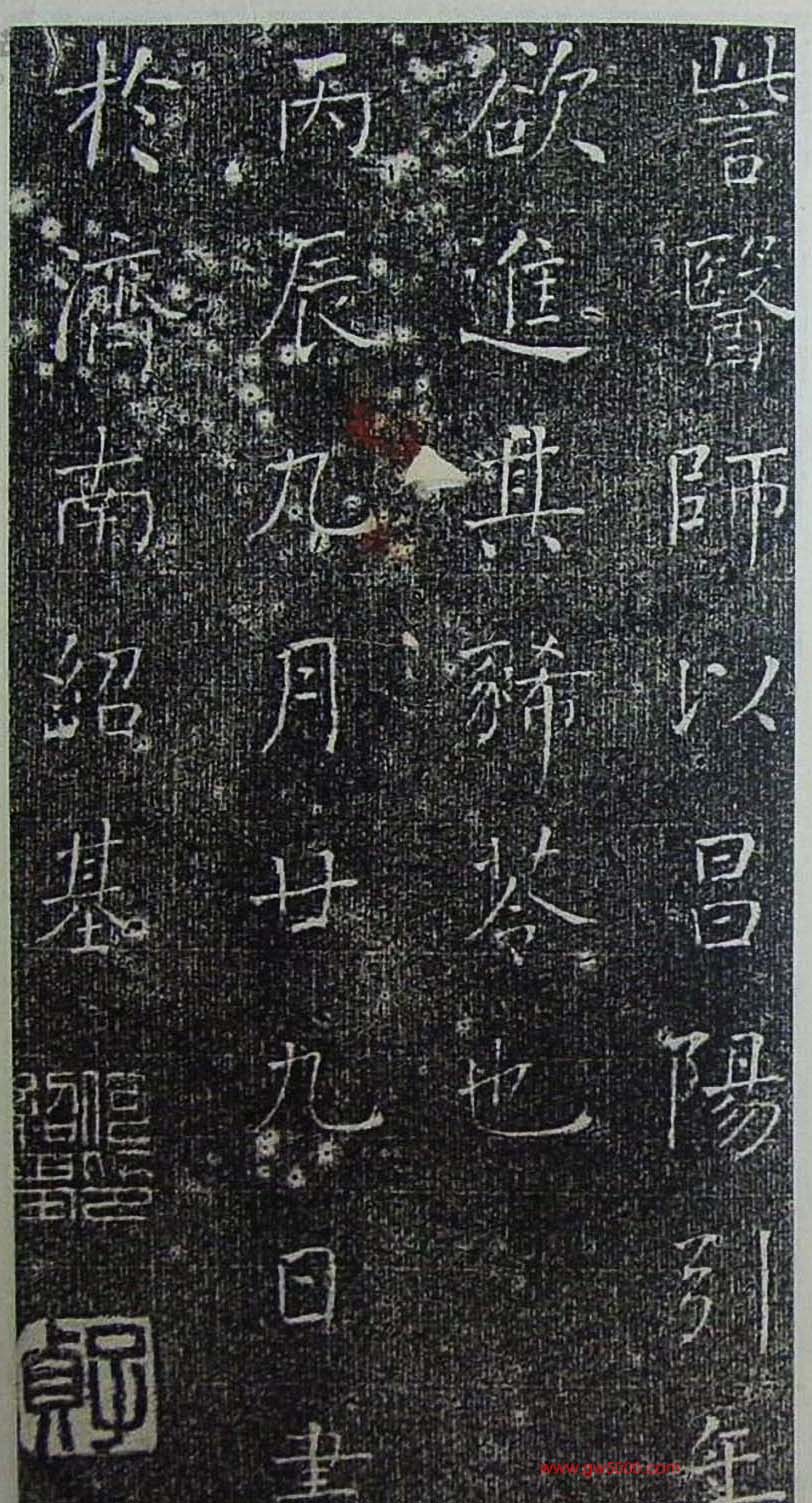 訾醫師以昌陽引年
欲進其豨苓也
丙辰九月廿九日書
於濟南紹基
子貞
www.gw5000.com